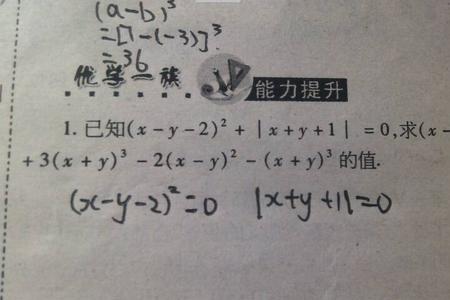 (a-b)³
=[1-(-3)]³
=36
优学一族
能力提升
1. 已知(x-y-2)²+|x+y+1|=0,求(x-
+3(x+y)³-2(x-y)²-(x+y)³的值.
(x-y-2)²=0 |x+y+1|=0